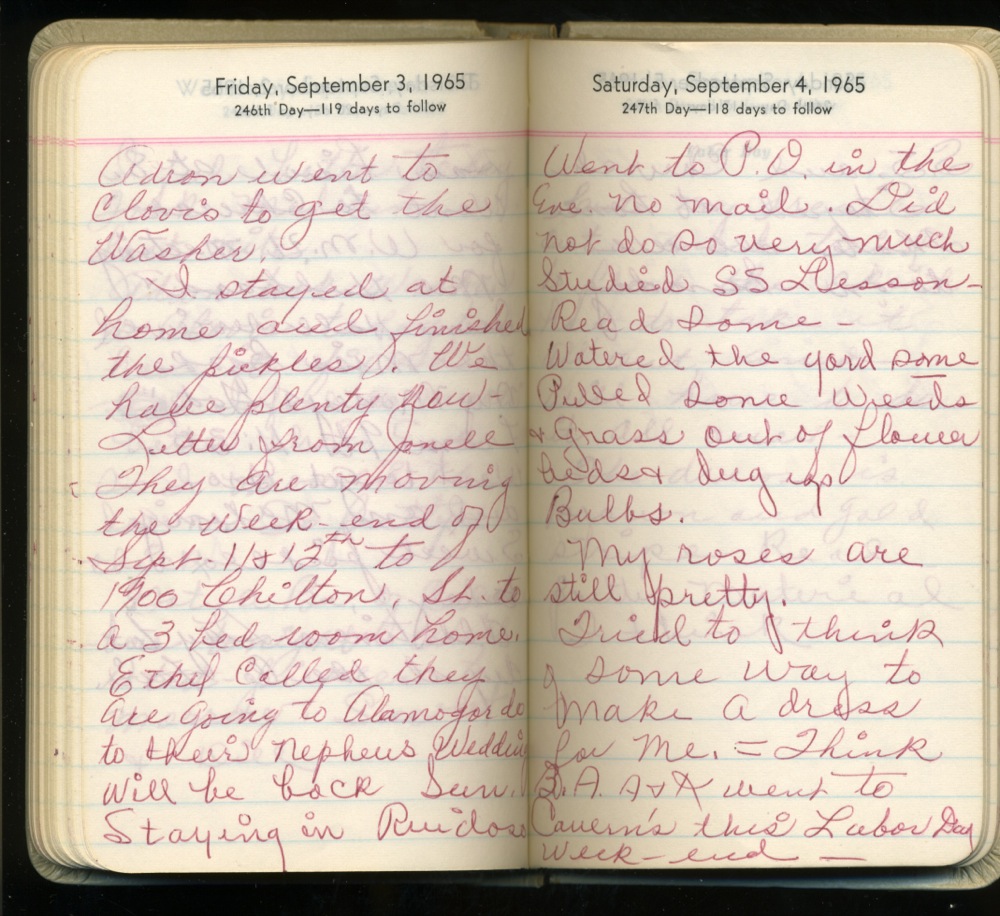 Friday, September 3, 1965
246th Day—119 days to follow
Adron went to
Clovis to get the
Washer.
I stayed at
home and finished
the pickles. We
have plenty now-
Letter from Jonell
They are moving
the week-end of
Sept. 11 & 12th to
1900 Chilton, St. to
a 3 bed room home.
Ethel Called they
are going to Alamogordo
to their nepheus Wedding
will be back Sun.
Staying in Ruidoso
Saturday, September 4, 1965
247th Day—118 days to follow
Went to P.O. in the
Eve. no mail. Did
not do so very much
Studied SS Lesson-
Read some -
Watered the yard some
Pulled some weeds
& Grass out of flower
beds & dug up
Bulbs.
My roses are
still pretty.
Tried to think
of some way to
make a dress
for me. = Think
B.A. A & K went to
Cavern's this Labor Day
week-end —